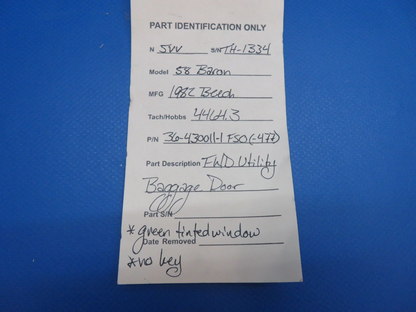 PART IDENTIFICATION ONLY
N 5VV S/N TH-1334
Model 58 Baron
MFG 1982 Beech
Tach/Hobbs 4464.3
P/N 36-430011-1 FSO(-477)
Part Description FWD Utility
Baggage Door
Part S/N
*green tinted window
Date Removed
*no key